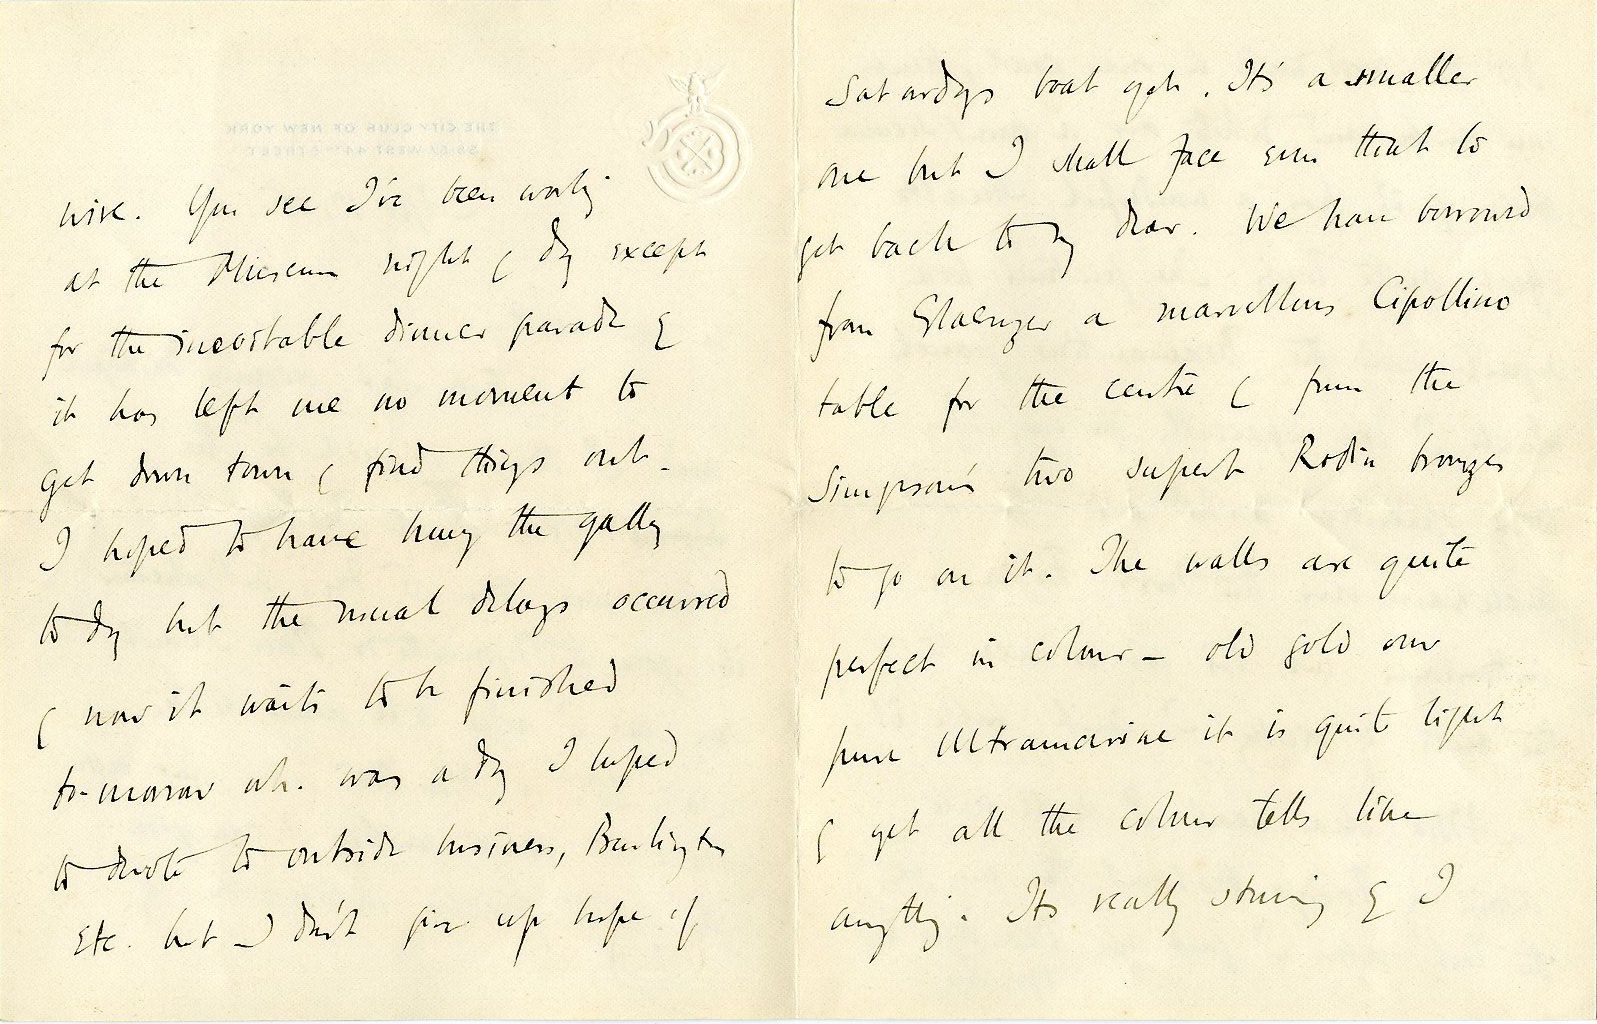 THE CITY CLUB OF NEW YORK
WEST 44TH STREET
wire. You see I've been working
at the Museum night & day except
for the inevitable dinner parade &
it has left me no moment to
get down town & find things out.
I hoped to have hung the gallery
to day but the usual delays occurred
& now it waits to be finished
to-morrow wh. was a day I hoped
to devote to outside business, Burlington
Etc. but I don't give up hope of
Saturdays boat yet. It's a smaller
one but I shall face even that to
get back to my dear. We have borrowed
from Glaenzer a marvellous Cipollino
table for the centre & from the
Simpson's two superb Rodin bronzes
to go on it. The walls are quite
perfect in colour – old gold over
pure Ultramarine it is quite light
& yet all the colour tells like
anything. Its really stunning & I